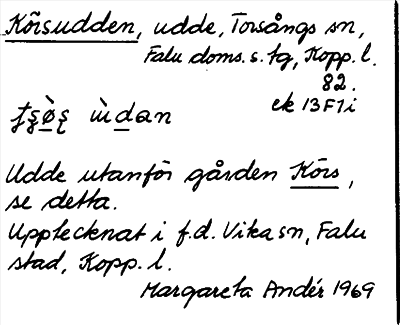 Körsudden, udde, Torsångs sn,
Falu doms. s. tg, Kopp. l.
82.
ek 13F7i
ùdan
Udde utanför gården Körs,
se detta.
Upptecknat i f.d. Vika sn, Falu
stad, Kopp. l.
Margareta Andér 1969